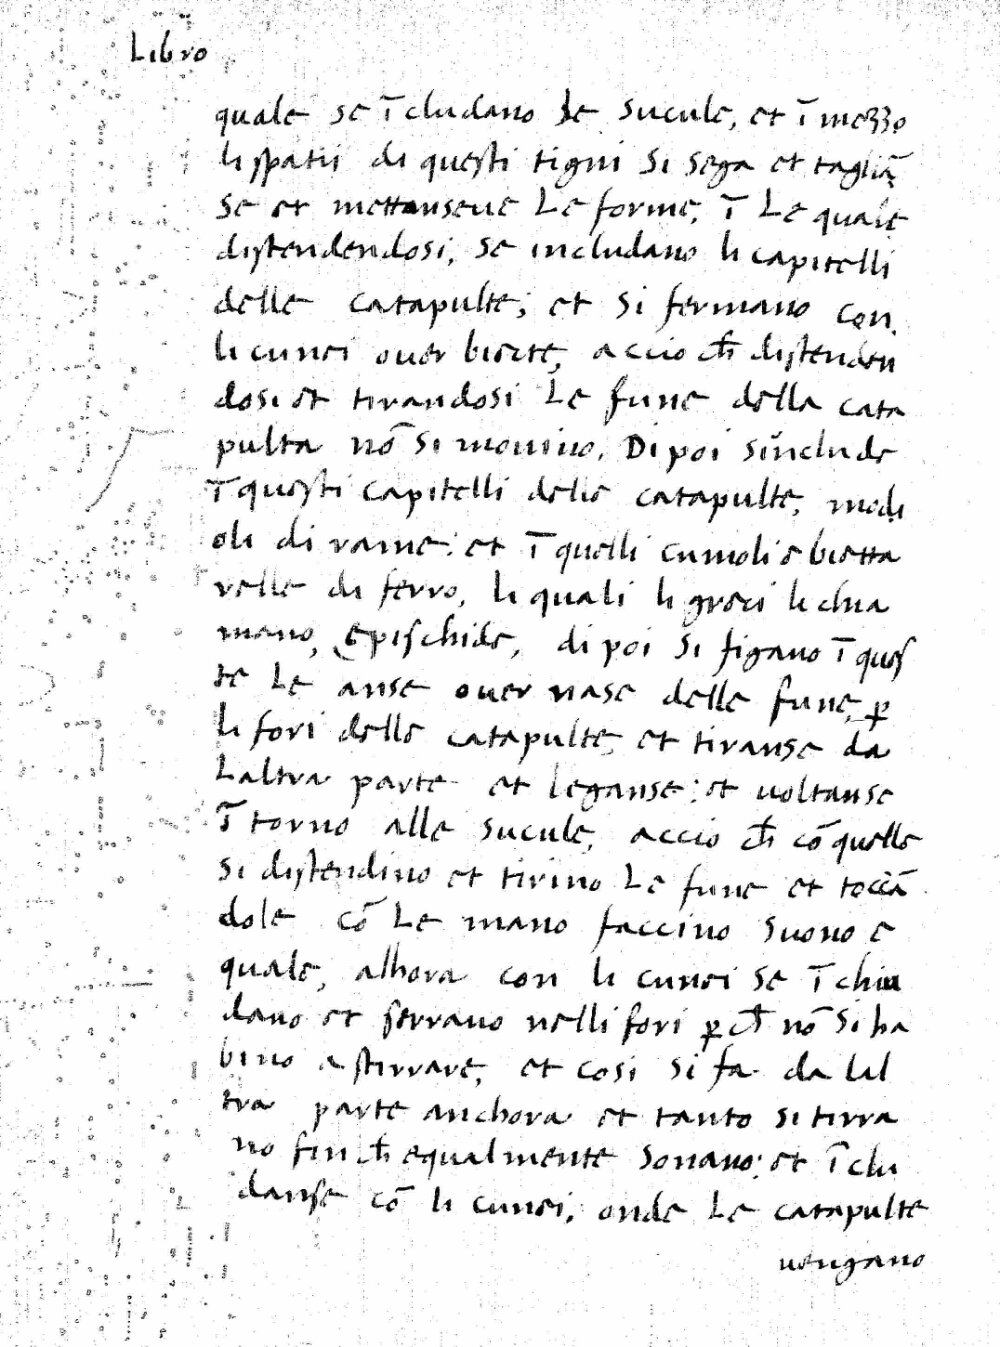 Libro
quale se ī cludano le sucule, et ī mezzo
li spatii di questi tigni si sega et tagliā
se et mettansene le forme, ī le quale
distendendosi, se includano li capitelli
delle catapulte, et si fermano con
li cunei over biette, accio ch̄ distenden
dosi et tirandosi le fune della cata
pulta nō si movino. Di poi s'include
ī questi capitelli delle catapulte, modi
oli di rame: et ī quelli cunioli e bietta
relle di ferro, li quali li greci li chia
mano, Epischide, di poi si figano ī ques
te le anse over nase delle fune, ꝑ
li fori delle catapulte, et tiranse da
laltra parte et leganse: et voltanse
ītorno alle sucule, accio ch̄ cō quelle
si distendino et tirino le fune et toccā
dole cō le mano faccino suono e
quale, alhora con li cunei se ī chiu
dano et serrano nelli fori ꝑ ch̄ nō si ha
bino a stirrare, et cosi si fa da lal
tra parte anchora et tanto si tirra
no fin ch̄ equalmente sonano: et ī clu
danse cō li cunei, onde le catapulte
vengano